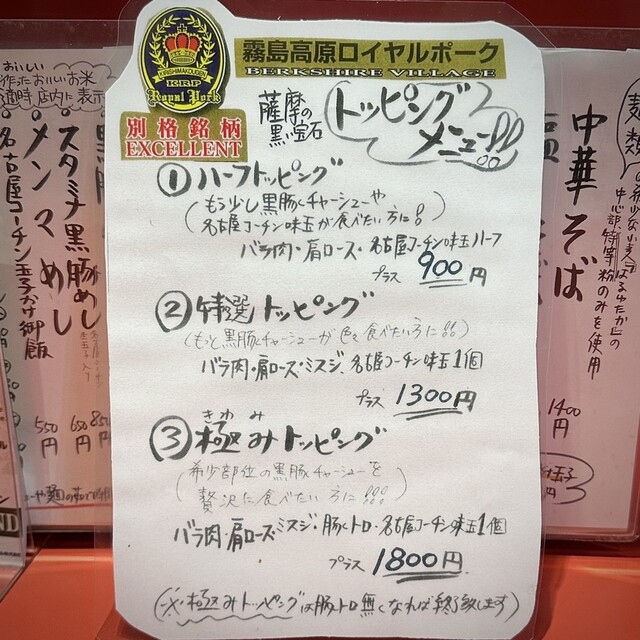 霧島高原ロイヤルポーク
BERKSHIRE VILLAGE
KIRISHIMAKOUGEN
KRP
Royal Pork
別格銘柄
EXCELLENT
薩摩の
黒い宝石
トッピング
メニュー!!!
① ハーフトッピング
(もう少し黒豚チャーシューや
名古屋コーチン味玉が食べたい方に!)
バラ肉・肩ロース・名古屋コーチン味玉ハーフ
プラス 900円
② 特選トッピング
(もっと黒豚チャーシューが色々食べたい方に!!)
バラ肉・肩ロース・ミスジ・名古屋コーチン味玉1個
プラス 1300円
きわみ
③ 極みトッピング
(希少部位の黒豚チャーシューを
贅沢に食べたい方に!!!)
バラ肉・肩ロース・ミスジ・豚トロ・名古屋コーチン味玉1個
プラス 1800円
(※極みトッピングは豚トロ無くなれば終了致します)
おいしい
作ったおいしいお米
適時店内に表示
スタミナ黒豚めし
850円
メンマめし
650円
名古屋コーチン玉子かけ御飯
550円
中華そば
1400円
中心部、特等粉のみを使用